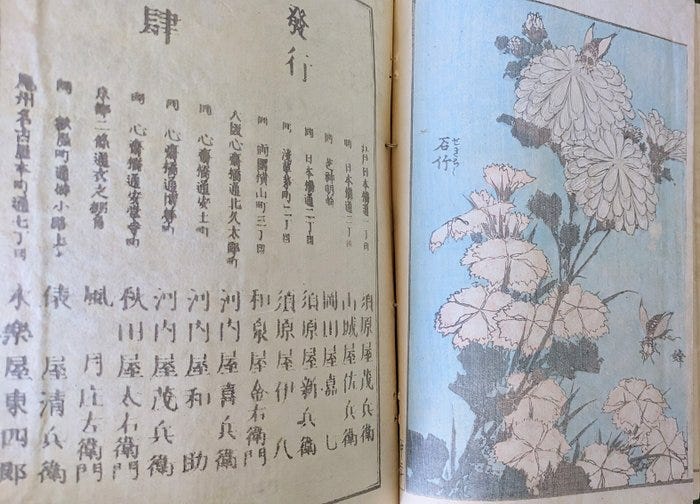 發行
肆
江戸日本橋通一丁目 須原屋茂兵衛
同 日本橋通二丁目 山城屋佐兵衛
同 芝神明前 岡田屋嘉七
同 日本橋通二丁目 須原屋新兵衛
同 淺草茅町二丁目 須原屋伊八
同 兩國横山町三丁目 和泉屋金右衛門
大阪心齋橋通北久太郎町 河内屋喜兵衛
同 心齋橋通安土町 河内屋和助
同 心齋橋通博勞町 河内屋茂兵衛
同 心齋橋通安堂寺町 秋田屋太右衛門
京都二條通衣之棚角 風月庄左衛門
同 麩屋町通姉小路上 俵屋清兵衛
尾州名古屋本町通七丁目 永樂屋東四郎
石竹
蜂